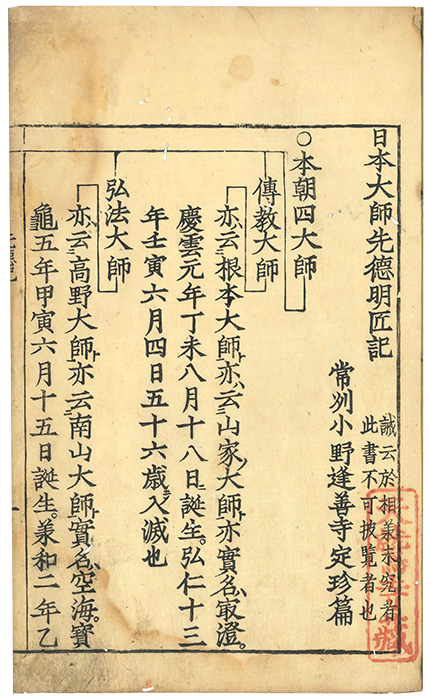 日本大師先德明匠記
誡云於相承未究者
此書不可披覽者也
常列小野逢善寺定珍篇
○本朝四大師
傳教大師
亦云根本大師亦云山家大師亦實名㝡澄。
慶雲元年丁未八月十八日誕生。弘仁十三
年壬寅六月四日五十六歳入滅也
弘法大師
亦云高野大師亦云南山大師實名空海。寶
龜五年甲寅六月十五日誕生。承和二年乙